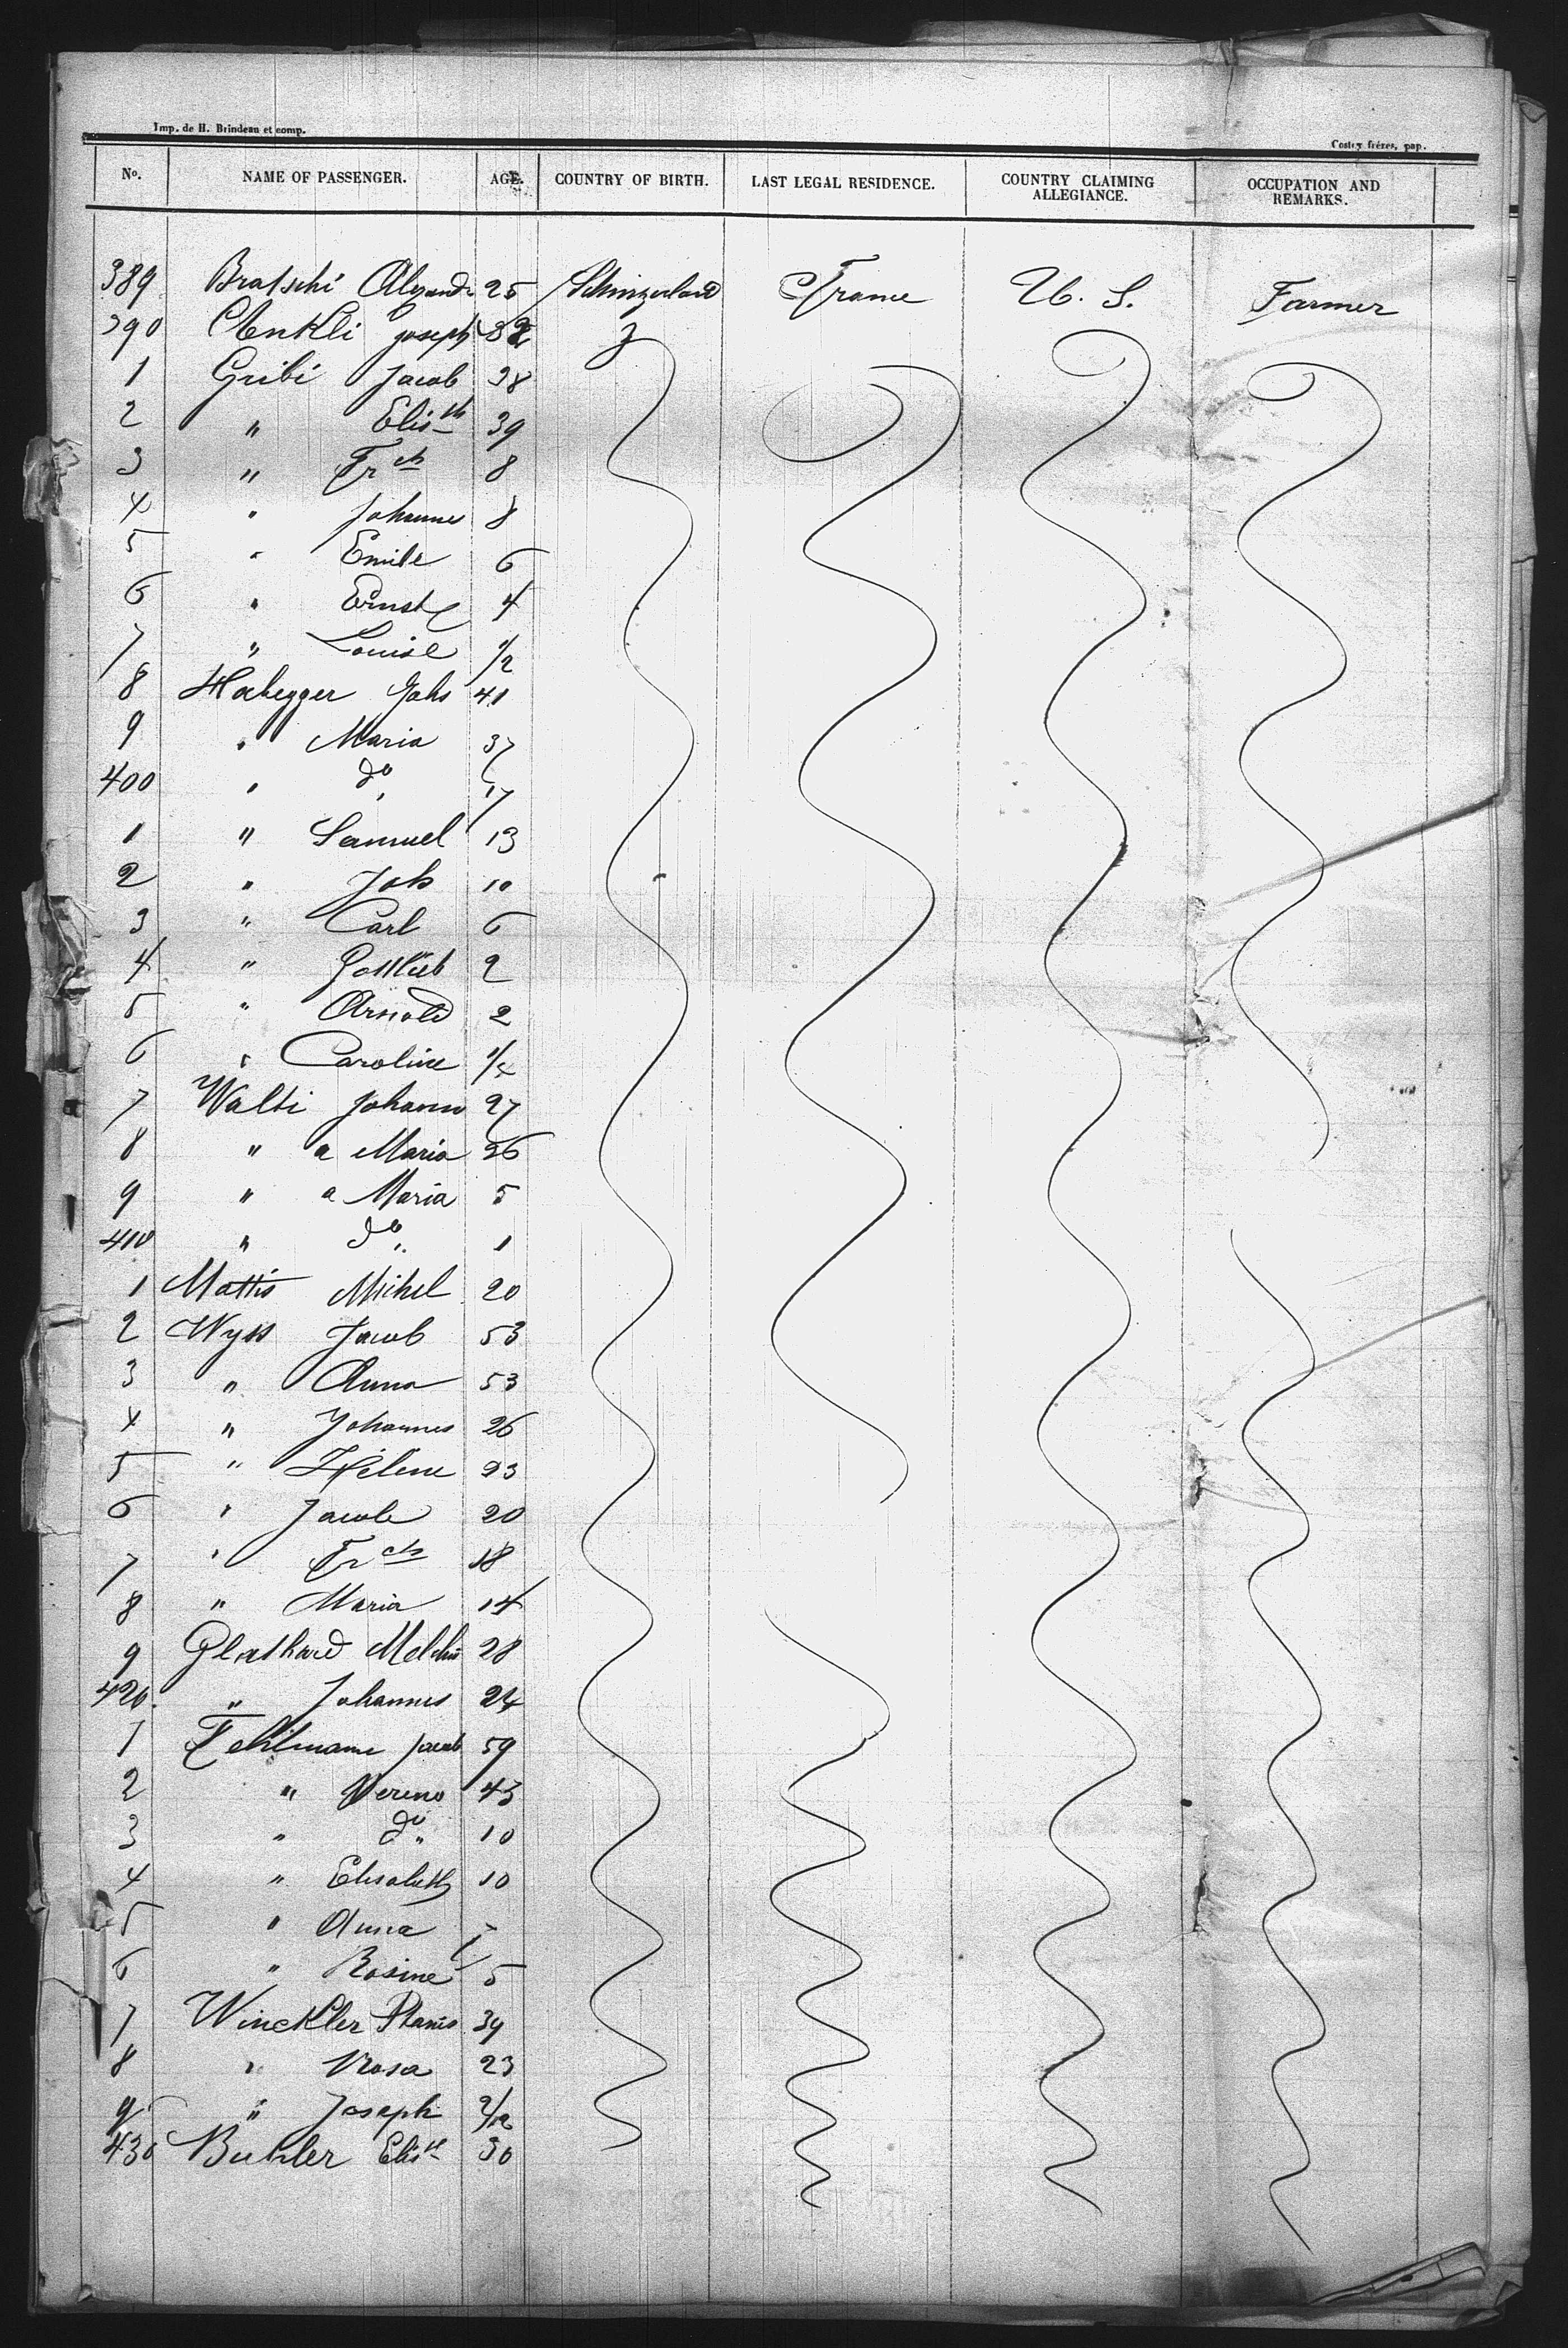 Imp. de H. Brindeau et comp.
Costey frères, pap.
No. NAME OF PASSENGER. AGE. COUNTRY OF BIRTH. LAST LEGAL RESIDENCE. COUNTRY CLAIMING ALLEGIANCE. OCCUPATION AND REMARKS.
389 Bratschi 25 France U. S. Farmer
390 Joseph
1 Gribi Jacob 38
2 " Elisth 39
3 " Frch 8
4 " Johannes 8
5 " Emile 6
6 " Ernst 4
7 " Louise 1/2
8 Habegger Johs 41
9 " Maria 37
400 " do 17
1 " Samuel 13
2 " Joh 10
3 " Carl 6
4 " Gottlieb 2
5 " Arnold 2
6 " Caroline 1/4
7 Walti Johann 27
8 " a Maria 26
9 " a Maria 5
410 " do 1
1 Mattis Michel 20
2 Wyss Jacob 53
3 " Anna 53
4 " Johannes 26
5 " Hélène 23
6 " Jacob 20
7 " Frch 18
8 " Maria 14
9 Glathard 28
420 " Johannes 24
1 Jacob 59
2 " Verena 43
3 " do 10
4 " Elisabeth 10
5 " Anna 7
6 " Rosine 5
7 Winckler
8 " Rosa 23
9 " Joseph
430 Buhler Elisth 30